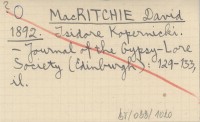 ? O MacRITCHIE David
1892. Isidore Kopernicki.
- Journal of the Gypsy-Lore
Society (Edinburgh): 129-133,
il.